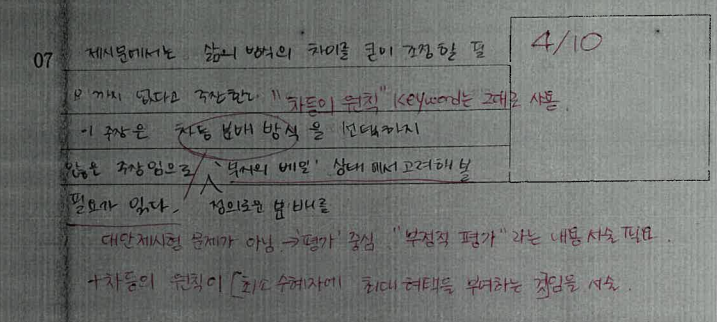 4/10
07 제시문에서는 삶의 방식의 차이를 굳이 조정할 필
요까지 없다고 주장한다 "차등의 원칙" Keyword는 그대로 사용.
이 주장은 차등 분배 방식을 선택하지
않은 주장임으로 '무지의 베일' 상태에서 고려해 볼
필요가 있다. 정의로운 분배를
대안제시형 문제가 아님 → '평가' 중심 "부정적 평가"라는 내용 서술 필요.
+차등의 원칙이 [최소 수혜자에 최대 혜택을 부여하는 것]임을 서술.